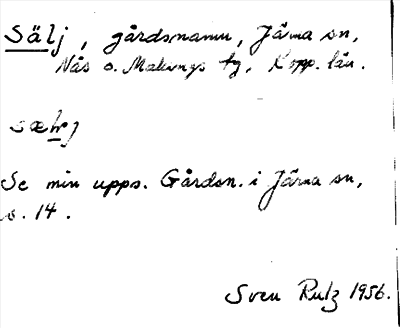 Sälj, gårdsnamn, Järna sn,
Nås o. Malungs tg, Kopp. län.
Se min upps. Gårdsn. i Järna sn,
s. 14.
Sven Rutz 1956.